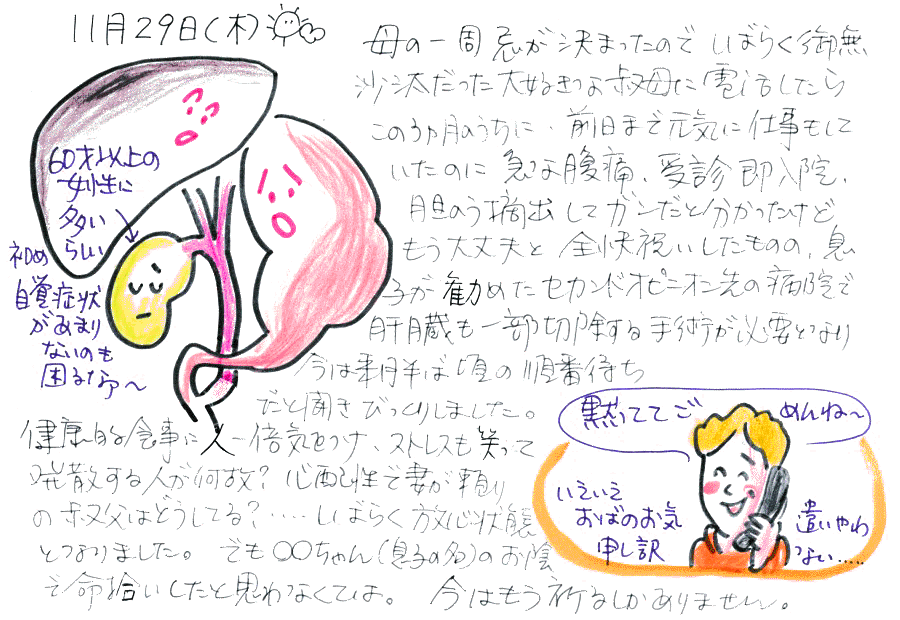 11月29日(木)
母の一周忌が決まったので しばらく御無
沙汰だった大好きな叔母に電話したら
この3ヵ月のうちに、前日まで元気に仕事もして
いたのに 急な腹痛、受診即入院、
胆のう摘出してガンだと分かったけど
もう大丈夫と 全快祝いしたものの、息
子が勧めたセカンドオピニオン先の病院で
肝臓も一部切除する手術が必要となり
今は来月半ば頃の順番待ち
だと聞きびっくりしました。
健康的な食事に人一倍気をつけ、ストレスも笑って
発散する人が何故? 心配性で妻が頼り
の叔父はどうしてる?・・・しばらく放心状態
となりました。 でも〇〇ちゃん(息子の名)のお陰
で命拾いしたと思わなくては。 今はもう祈るしかありません。
60才以上の
女性に
多い
らしい
初め
自覚症状
があまり
ないのも
困るなァ〜
黙っててご めんね〜
いえいえ
おばのお気
遣いやわ
申し訳
ない.....